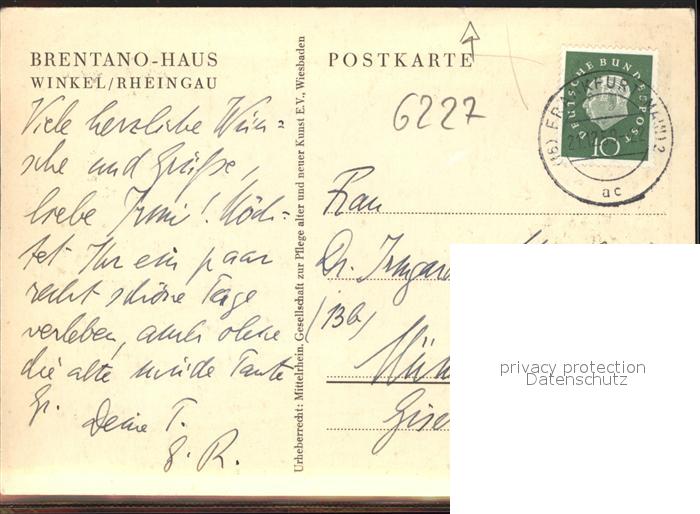 BRENTANO-HAUS
WINKEL/RHEINGAU
Viele herzliche Wün-
sche und Grüße,
liebe Irmi! Möch-
tet Ihr ein paar
recht schöne Tage
verleben, auch ohne
die alte müde Tante
Gr.
Deine T.
G. R.
Urheberrecht: Mittelrhein. Gesellschaft zur Pflege alter und neuer Kunst E.V., Wiesbaden
POSTKARTE
6227
DEUTSCHE BUNDESPOST
10
(16) FRANKFURT (MAIN) 2
ac
Frau
Dr. Irmgard
(13b)
Mün
Gise
privacy protection
Datenschutz